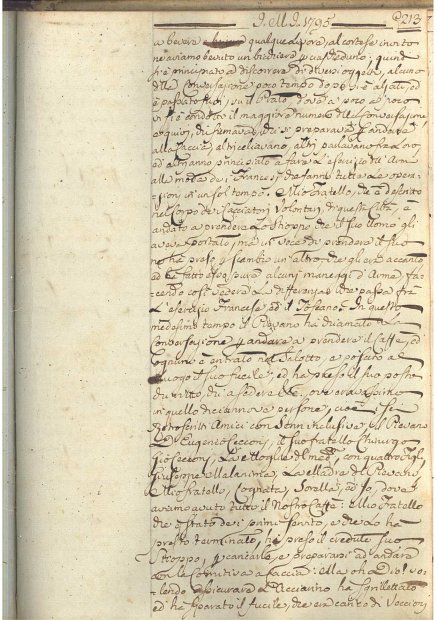 I. M. I. 1795. 213
a bevere qualque liquore, al cortese invito
ne abbiamo bevuto un bicchiere per ciascheduno; quindi
si è principiato a discorrere di diversi oggetti, alcuno
della Conversazione poco tempo dopo si è alzato, ed
è passato fuori, su il Prato, dove a poco a poco
vi si è condotto il maggiore numero della Conversazione,
e quivi, chi fumava, chi si preparava per andare
alla Caccia, altri, altri parlavano fra loro,
ed altri hanno principiato a fare l'esercizio dell'Armi
alla moda dei Francesi, che fanno tutte le opera-
zioni in un sol tempo. Mio Fratello, che è descritto
nel Corpo dei Cacciatori Volontari di questa Città, è
andato a prendere lo Schioppo che il suo Uomo gli
aveva portato, ma in voce di prendere il suo
ne ha preso per scambio un altro, che gli era accanto
ed ha fatto esso pure alcuni maneggi d'Arme, fa-
cendo così vedere la differenza che passa fra
l'esercizio Francese, ed il Toscano. In questo
medesimo tempo il Pievano ha chiamato la
Conversazione per andare a prendere il Caffè, ed
ognuno è entrato nel Salotto, e posato al
luogo il suo fucile, ed ha preso il suo posto
chi ritto, chi a sedere ove eravamo
in quello diciannove persone, cioè i sei
Retroscritti Amici con Senn inclusive, il Pievano
D. Eugenio Cecconi, il suo Fratello Chirurgo
Gio: Cecconi, con quattro Figli,
la Madre del Pievano,
Mio Fratello, Cognata, Sorella, ed Io, dove
avevamo avuto tutto il Nostro Caffè: Mio Fratello
che è stato dei primi servito, e che lo ha
presto terminato, ha preso il creduto suo
Stioppo, per caricarlo, e prepararsi ad andare
con la Comitiva a Caccia: Ma oh Dio! vo-
lendo assicurare l'Acciarino ha sgrillettato
ed ha sparato il fucile, che era carico di Veccioni